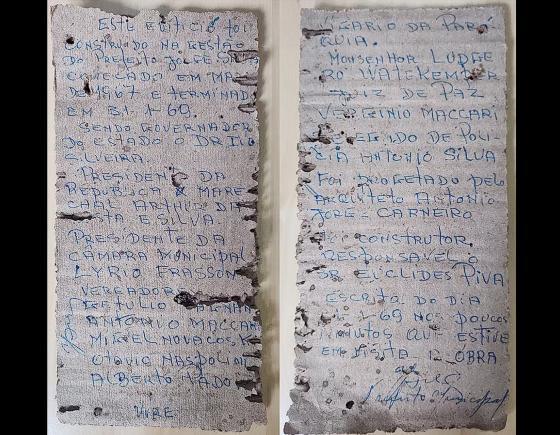 ESTE EDIFICIO FOI
CONSTRUIDO NA GESTÃO
DO PREFEITO JORGE
COMEÇADO EM MA
DE 1967 E TERMINAD
EM 31 1-69.
SENDO GOVERNADER
DO ESTADO O DR IVO
SILVEIRA.
PRESIDENTE DA
REPUBLICA MARE
CHAL ARTHUR DA
STA E SILVA
PRESIDENTE DA
CÂMARA MUNICIPAL
LYRIO FRASSON
VEREADOR
GETULLO
ANTONIO MACCARI
MIGUEL NOVACOSK
OTAVIO NASPOLINI
ALBERTO
VIVRE
VIGARIO DA PARÓ
QUIA.
MONSENHOR LUDGE
RO WATEKEMPER
JUIZ DE PAZ
VERGINIO MACCARI
DO DE POLI-
CIA ANTONIO SILVA
FOI PROGETADO PELO
ARQUITETO ANTONIO
JORGE CARNEIRO
CONSTRUTOR.
RESPONSAVEL O
SR EUCLIDES PIVA
ESCRITO DO DIA
1-69 NOS POUCOS
MINUTOS QUI ESTIVE
EM VISITA OBRA
Prefeito Municipal